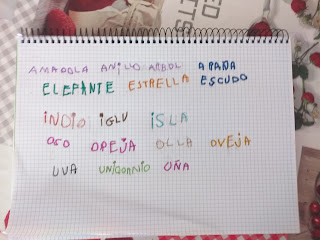 AMAPOLA ANILLO ARBOL ARAÑA
ELEFANTE ESTRELLA ESCUDO
iNDIO iGLU iSLA
OSO OREJA OLLA OVEJA
UVA UNICORNIO UÑA